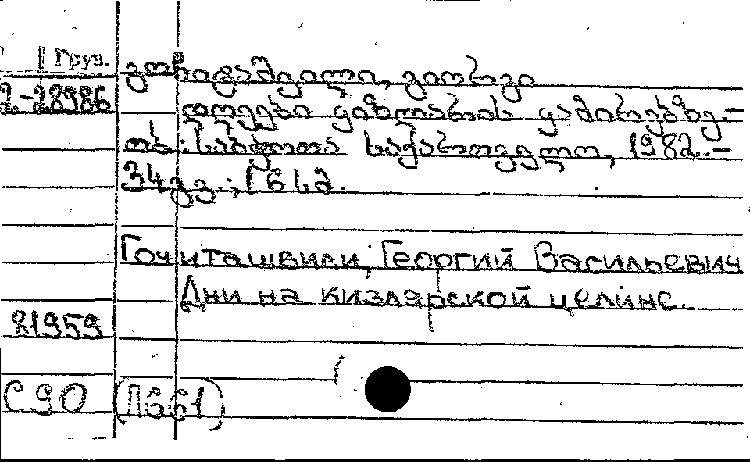 Груз.
გოჩიტაშვილი, გიორგი
2-28986
დღეები ყიზლარის ყამირებზე.—
თბ.: საბჭოთა საქართველო, 1982.—
34 გვ.; 16 სმ.
Гочиташвили, Георгий Васильевич
Дни на кизлярской целине.
21959
С90 (П661)